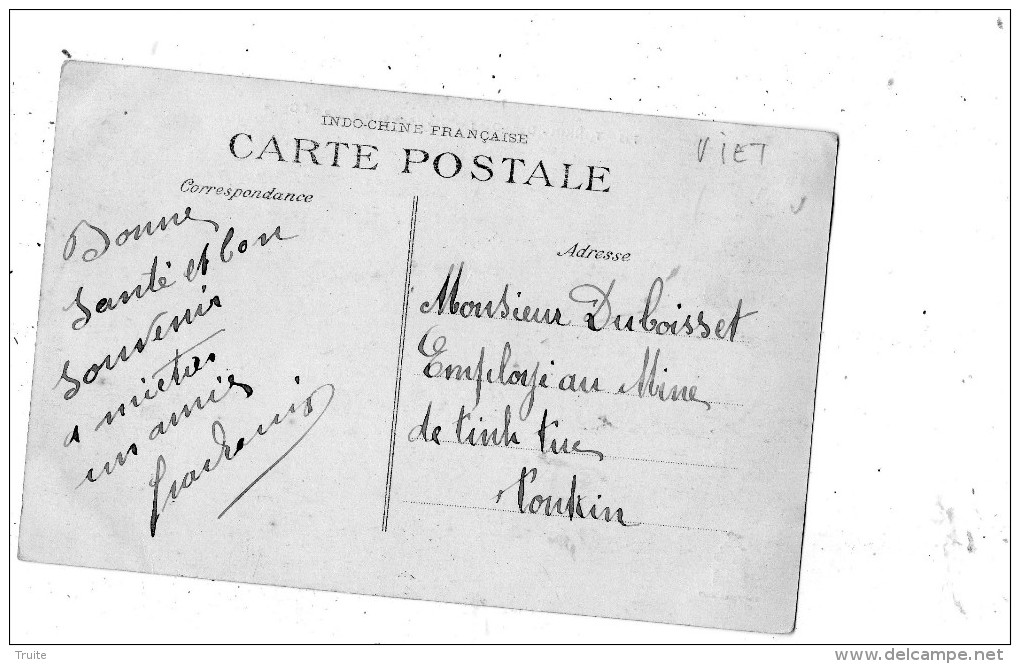 INDO-CHINE FRANÇAISE
CARTE POSTALE
VIET
Correspondance
Bonne
Santé et bon
Souvenir
a
un amie
Adresse
Monsieur Duboisset
Employé au Mine
de tinh tuc
Tonkin
Truite
www.delcampe.net